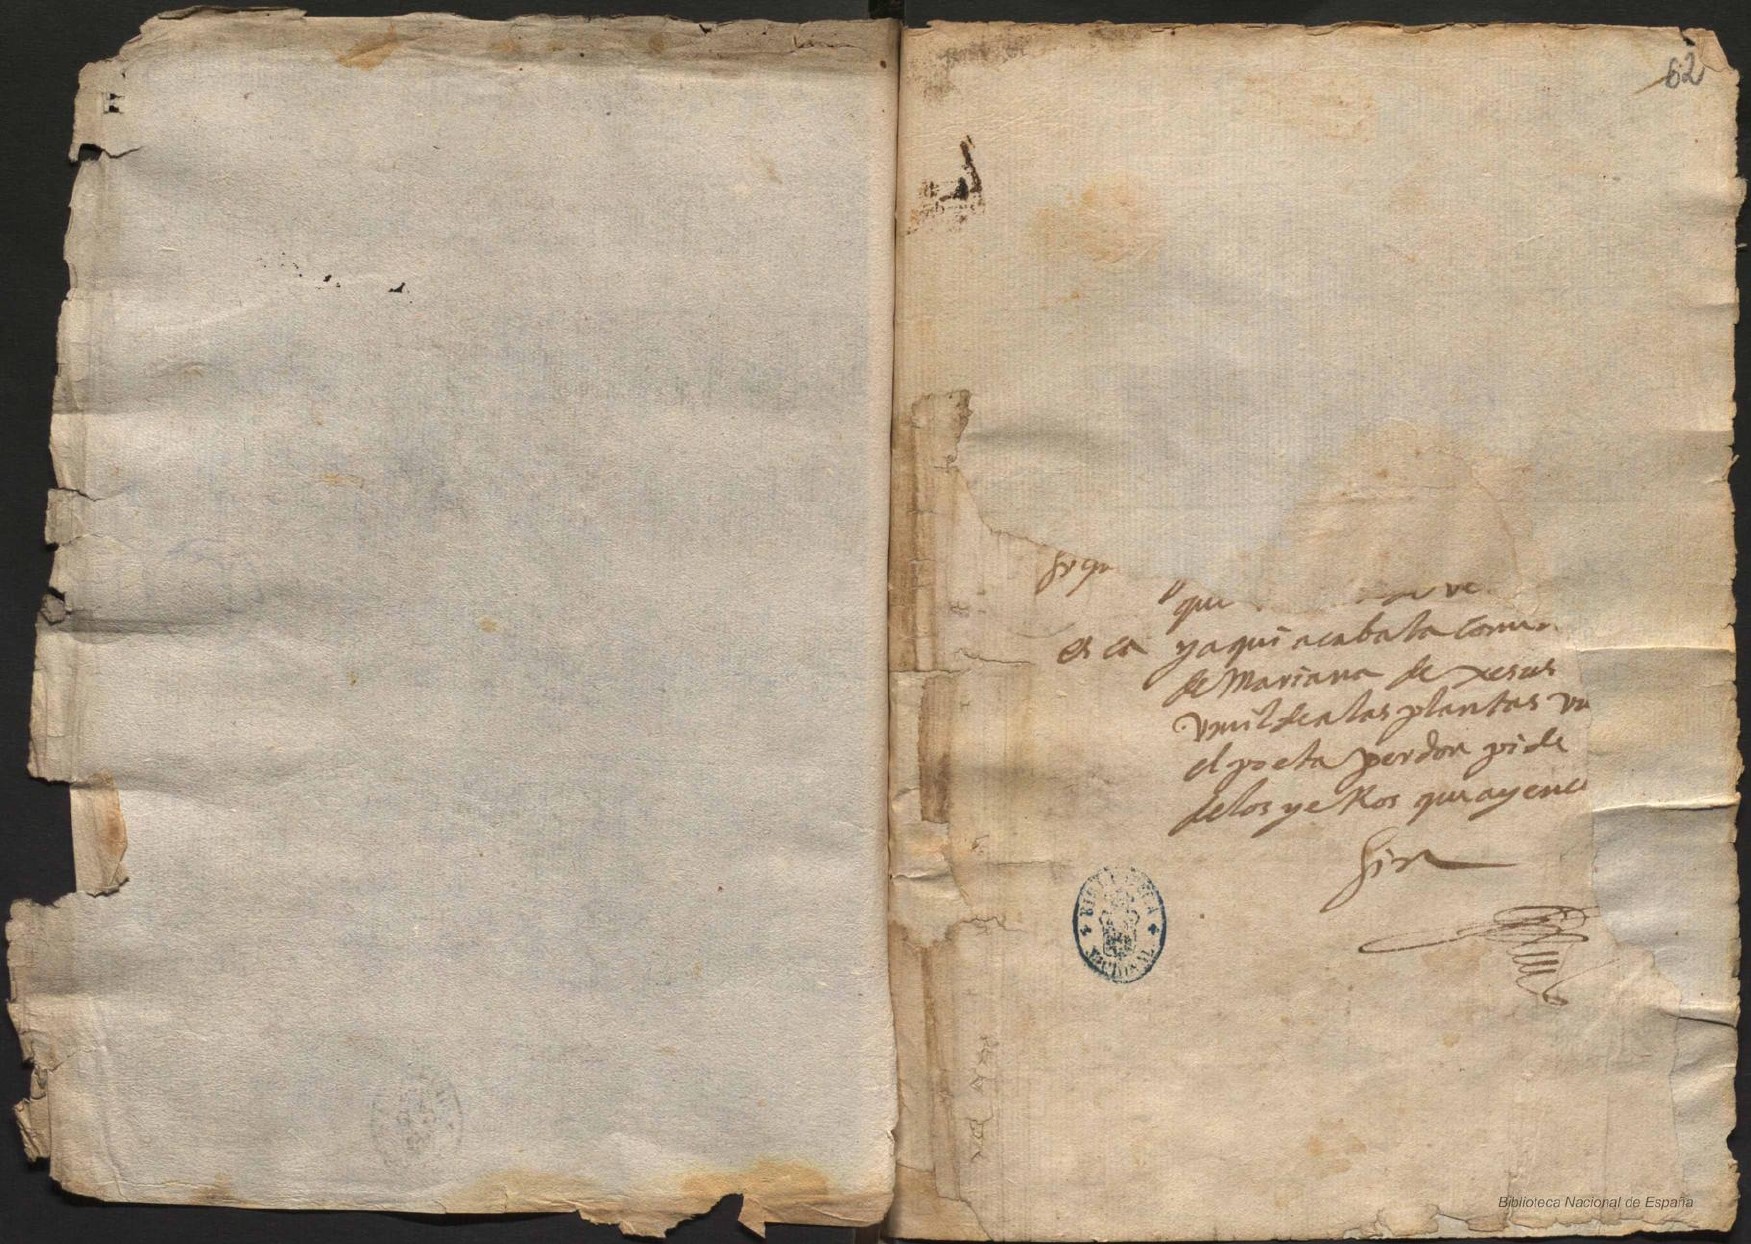 62
que ve
esca y aqui acaba la come
de Mariana de xesus
vmilde a las plantas vu
el poeta perdon pide
de los yeRos que ay en e
fin
BIBLIOTECA NACIONAL
Biblioteca Nacional de España